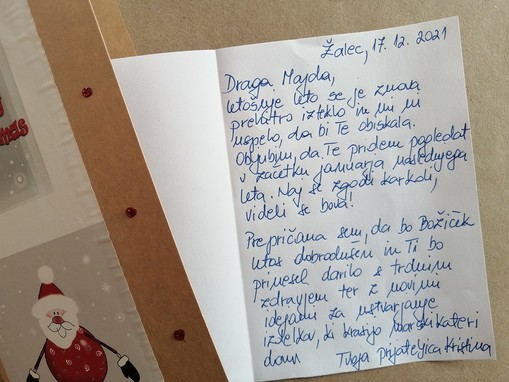 mas
Žalec, 17. 12. 2021
Draga Majda,
letošnje leto se je znova
prehitro izteklo in mi ni
uspelo, da bi Te obiskala.
Obljubim, da Te pridem pogledat
v začetku januarja naslednjega
leta. Naj se zgodi karkoli,
videli se bova!
Prepričana sem, da bo Božiček
letos dobrodušen in Ti bo
prinesel darilo s trdnim
zdravjem ter z novimi
idejami za ustvarjanje
izdelkov, ki krasijo marsikateri
dom
Tvoja prijateljica Kristina